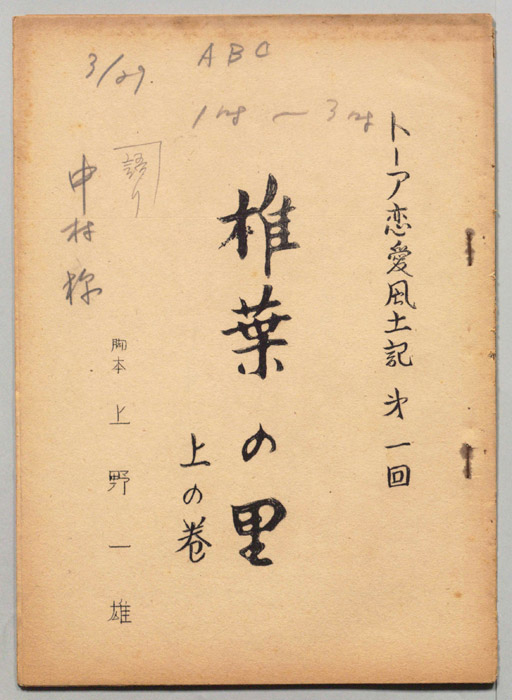 3/29.
ABC
1時〜3時
トーア恋愛風土記 第一回
椎葉の里
上の巻
語り
中村様
脚本 上野一雄